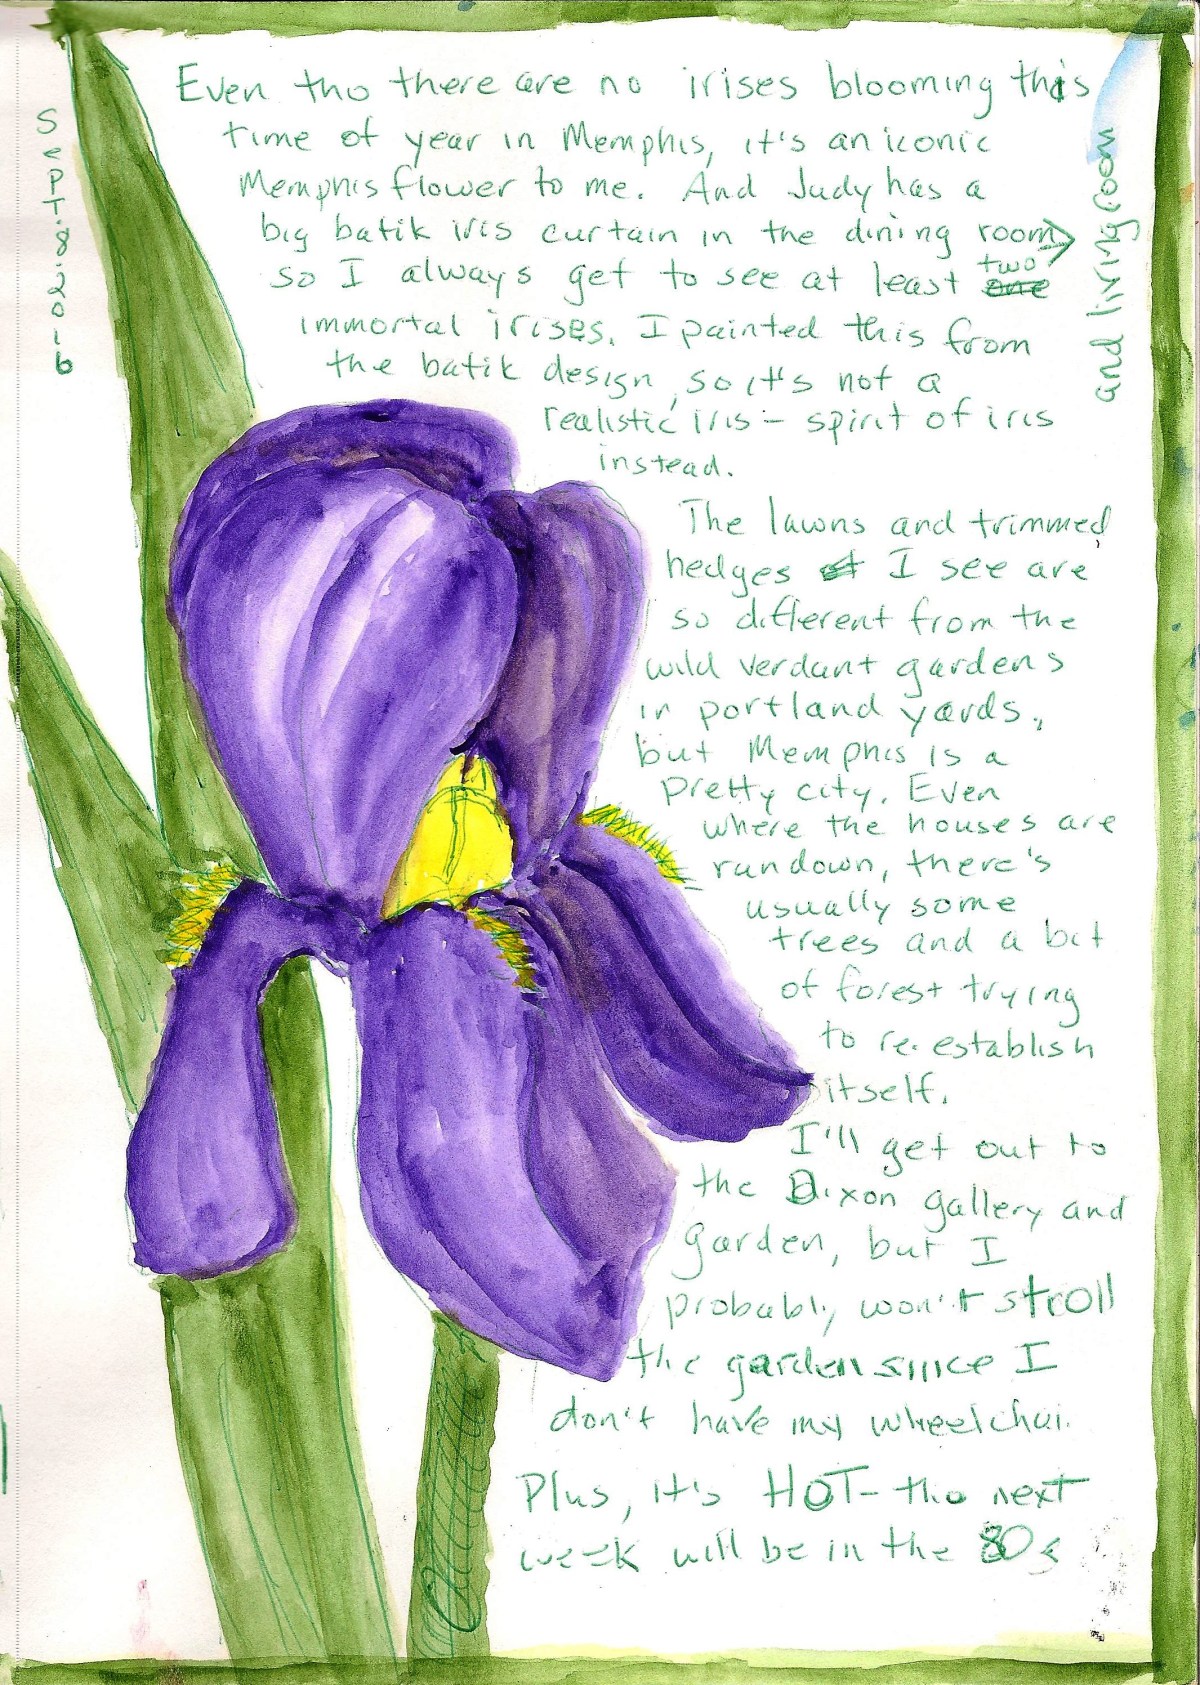 Sept. 8. 2016
Even tho there are no irises blooming this
time of year in Memphis, it's an iconic
Memphis flower to me. And Judy has a
big batik iris curtain in the dining room →
and living room
so I always get to see at least two
immortal irises. I painted this from
the batik design, so it's not a
realistic iris - spirit of iris
instead.
The lawns and trimmed
hedges I see are
so different from the
wild verdant gardens
in portland yards,
but Memphis is a
pretty city. Even
where the houses are
rundown, there's
usually some
trees and a bit
of forest trying
to re-establish
itself.
I'll get out to
the Dixon gallery and
garden, but I
probably won't stroll
the garden since I
don't have my wheelchai.
Plus, it's HOT - tho next
week will be in the 80s